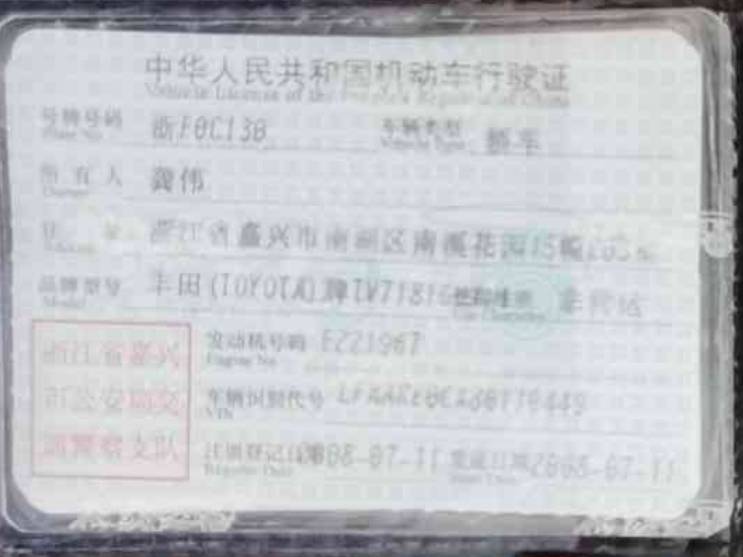 中华人民共和国机动车行驶证
Vehicle License of the People's Republic of China
号牌号码 浙F0C130 车辆类型 轿车
所有人 龚伟
住 址 浙江省嘉兴市南湖区南溪花园15幢
品牌型号 丰田(TOYOTA)牌 使用性质 非营运
发动机号码 E221967
Engine No.
车辆识别代号
VIN
注册登记日期 2008-07-11 发证日期 2008-07-11
Register Date Issue Date
浙江省嘉兴
市公安局交
通警察支队